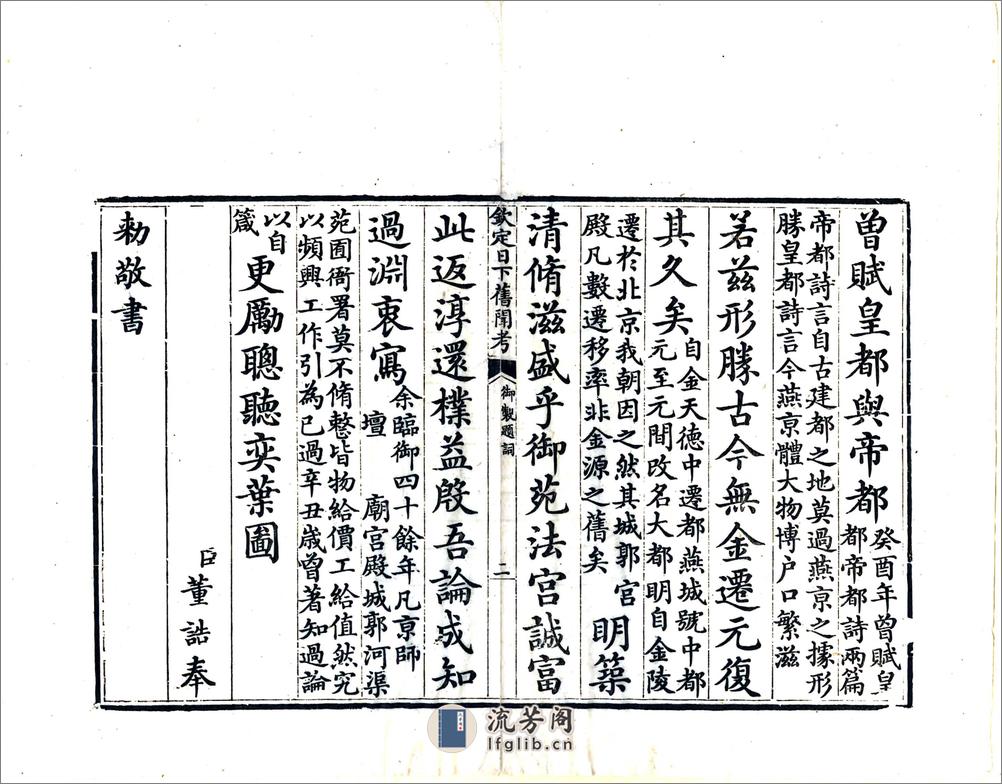 曾賦皇都與帝都
癸酉年曾賦皇
都帝都詩兩篇
帝都詩言自古建都之地莫過燕京之據形
勝皇都詩言今燕京體大物博户口繁滋
若兹形勝古今無金遷元復
其久矣
自金天德中遷都燕城號中都
元至元間改名大都明自金陵
遷於北京我朝因之然其城郭宫
殿凡數遷移率非金源之舊矣
明築
欽定日下舊聞考 御製題詞 二
清脩滋盛乎御苑法宫誠富
此返淳還樸益殷吾論成知
過淵衷寫
余臨御四十餘年凡京師
壇 廟宫殿城郭河渠
苑囿衙署莫不脩整皆物給價工給值然究
以頻興工作引為已過辛丑歲曾著知過論
以自
箴
更勵聰聽奕葉圖
臣董誥奉
勅敬書
流芳阁
lfglib.cn